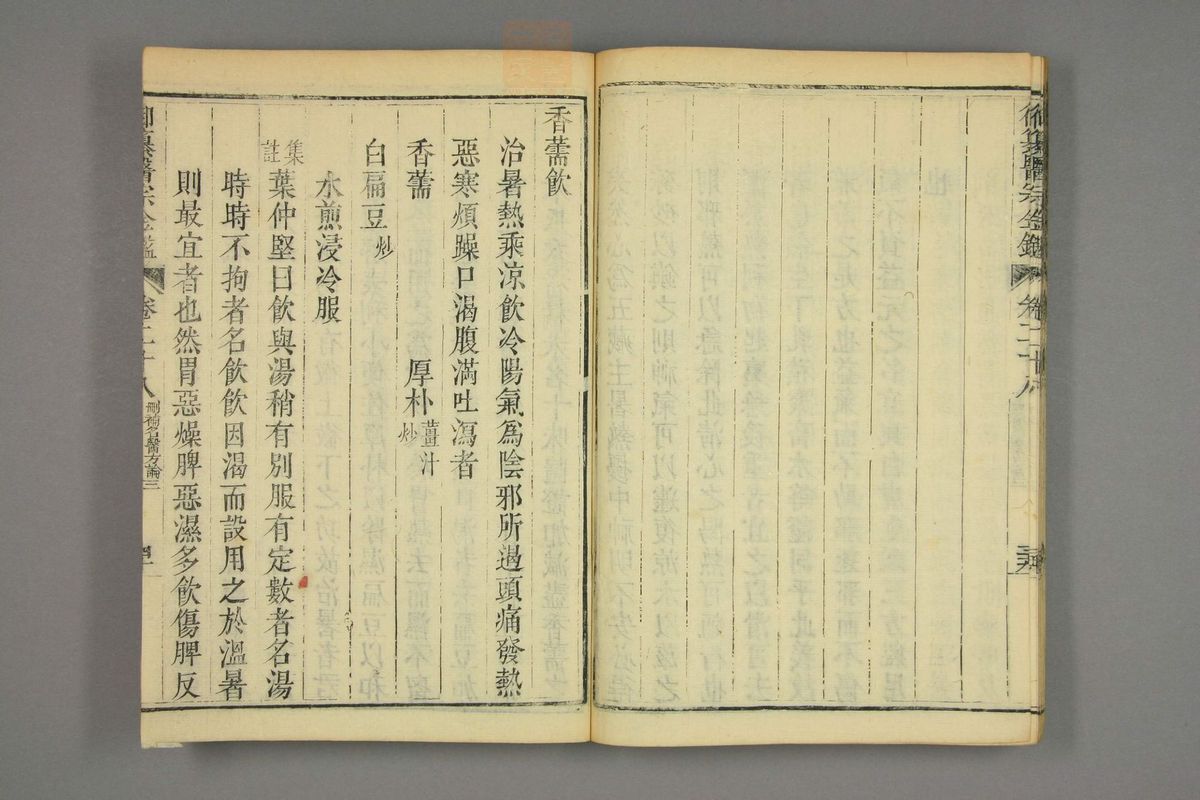 御纂醫宗金鑑 卷二十八
香薷飲
治暑熱乘涼飲冷陽氣爲陰邪所遏頭痛發熱
惡寒煩躁口渴腹滿吐瀉者
香薷 厚朴薑汁炒
白扁豆炒
水煎浸冷服
集註葉仲堅曰飲與湯稍有別服有定數者名湯
時時不拘者名飲飲因渴而設用之於溫暑
則最宜者也然胃惡燥脾惡濕多飲傷脾反
御纂醫宗金鑑 卷二十八 刪補名醫方論三